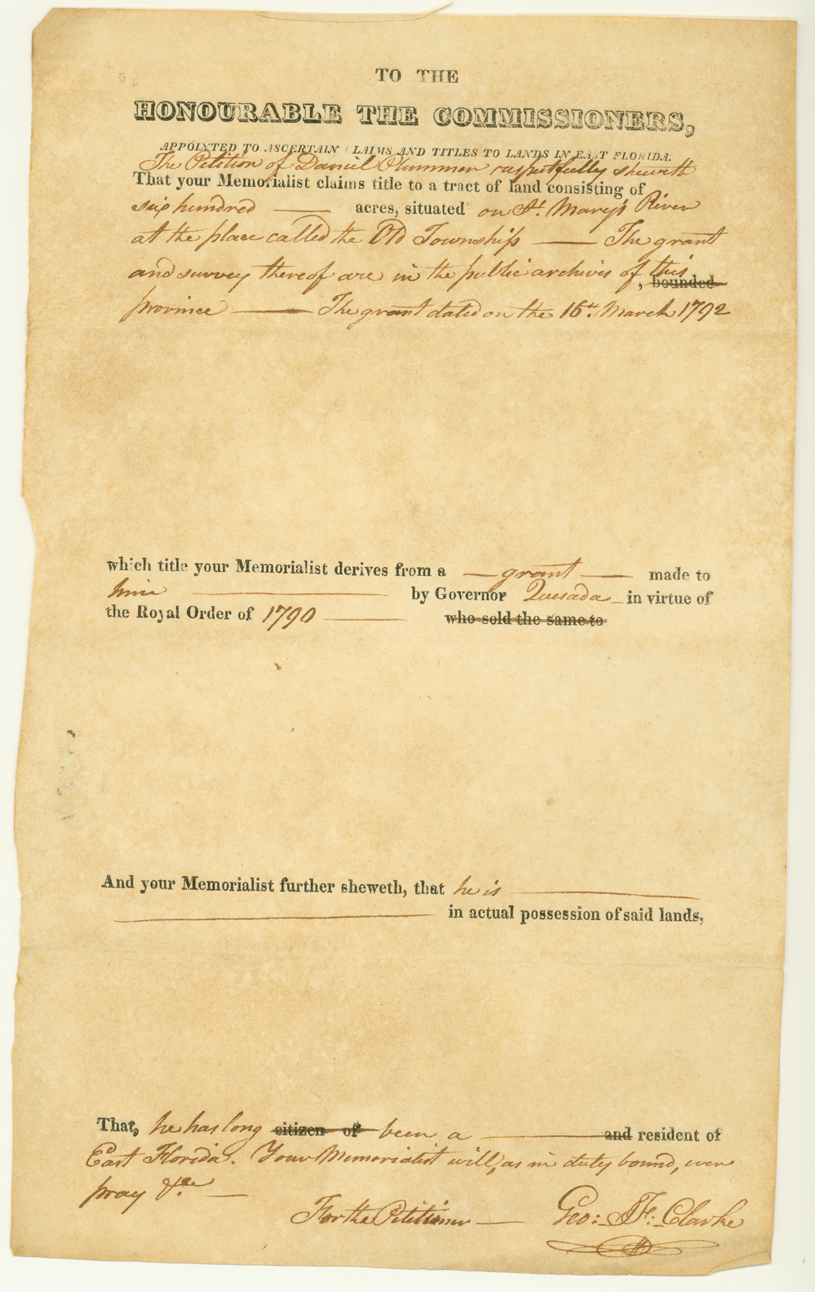 TO THE
HONOURABLE THE COMMISSIONERS,
APPOINTED TO ASCERTAIN CLAIMS AND TITLES TO LANDS IN EAST FLORIDA.
The Petition of Daniel Plummer respetfully sheweth
That your Memorialist claims title to a tract of land consisting of
six hundred —— acres, situated on St. Mary's River
at the place called the Old Township —— The grant
and survey thereof are in the public archives of this
, bounded
province —— The grant dated on the 16th. March 1792
which title your Memorialist derives from a — grant — made to
him —— by Governor Quesada — in virtue of
the Royal Order of 1790 —— who sold the same to
And your Memorialist further sheweth, that he is ——
—— in actual possession of said lands,
That, he has long citizen of been a —— and resident of
East Florida. Your Memorialist will, as in duty bound, ever
pray &ca —
For the Petitioner — Geo: J. F: Clarke